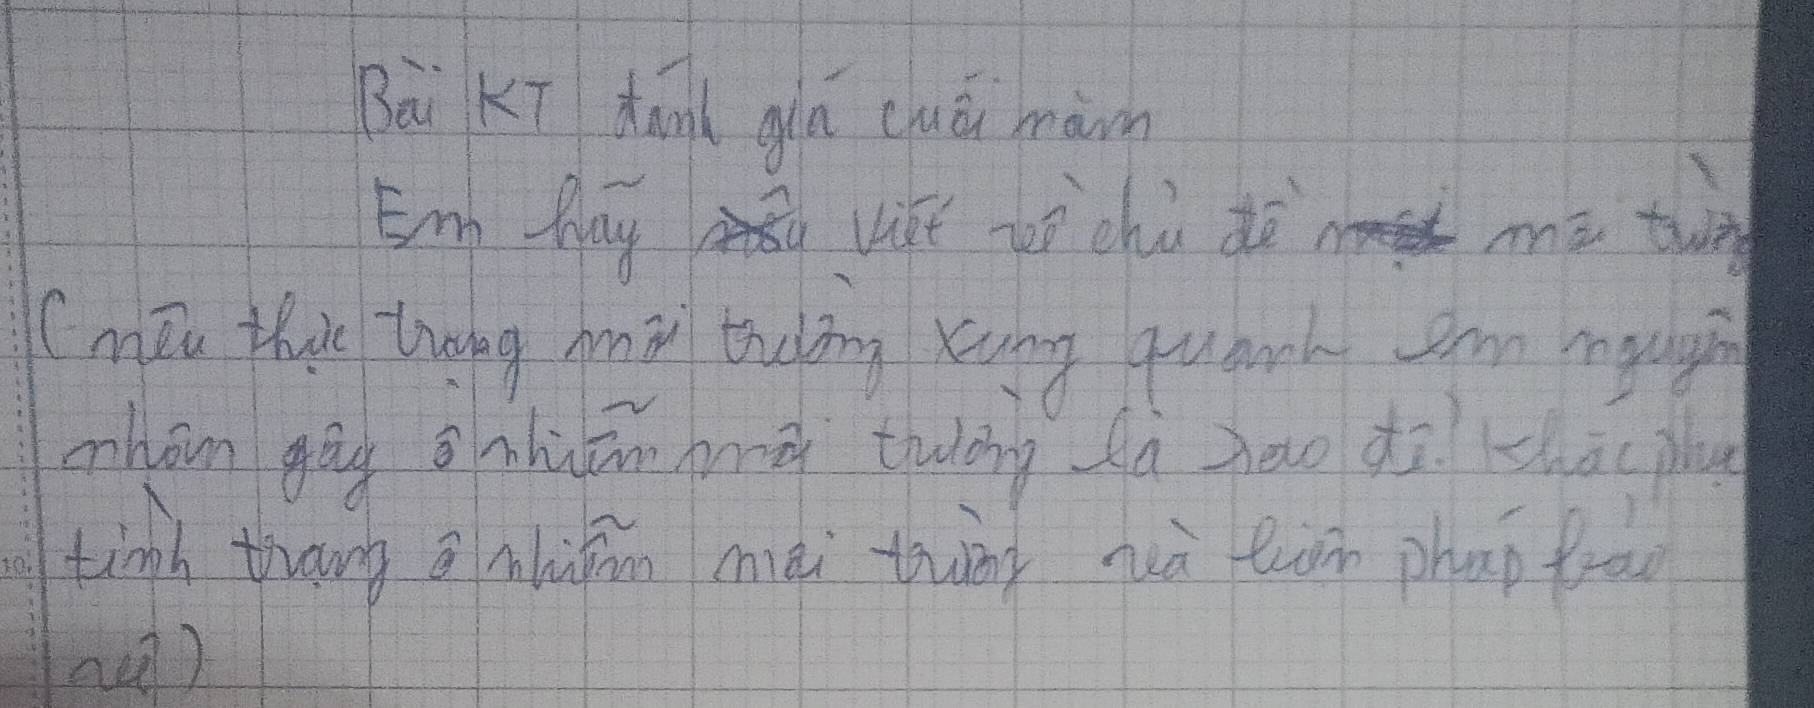 Bài KT đánh giá cuối năm
Em hãy viết về chủ đề môi trường
(nêu thực trạng môi trường xung quanh em nguyên
nhân gây ô nhiễm môi trường là sao để khắc phục
tình trạng ô nhiễm môi trường và biện pháp bảo
vệ)